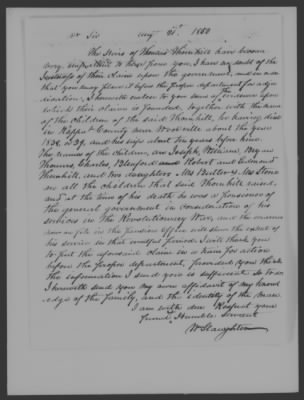 Dr Sir Aug 21st 1850
The Heirs of Thomas Thornhill have become
very impatient to hear from you, I have
of their claim upon the government, and in order
that you may place it before the proper department for adju
dication, I herewith enclose to you some of the evidence upon
which their claim is founded, together with the names
of the children of the said Thornhill, he having died
in Rappk County near Woodville about the year
and his wife about ten years before him.
The names of the children are Joseph, William, Bryan
Thomas, Charles, Bluford and Robert and Edmund
Thornhill, and two daughters Mrs Butler & Mrs Stone
are all the children that said Thornhill raised,
and at the time of his death he was a pensioner of
the general government in consideration of his
services in the Revolutionary War, and the
now on file in the pension office will show the extent of
his service in that eventful period, I will thank you
to put the aforesaid claim in a train for action
before the proper department, provided you think
the information I send you is sufficient to do so
I herewith send you my own affidavit of my knowl
edge of the family, and the identity of the man.
I am with due Respect your
Humble Servant
W Slaughter